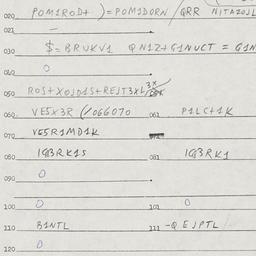 020 POM1ROD+ )=POM1DORN / QRR NITAZOJL
021 —
030 $=BRUKV1 QN1Z+G1NUCT = G1N
040 0
050 ROS+XOJD1S+REJT3XL
060 VE5X3R (/066070 061 P1LC+1K
070 VE5R1MD1K
080 1G3RK1S 081 1G3RK1
090 0
100 0 101 0
110 B1NTL 111 -Q EJPTL/
120 0